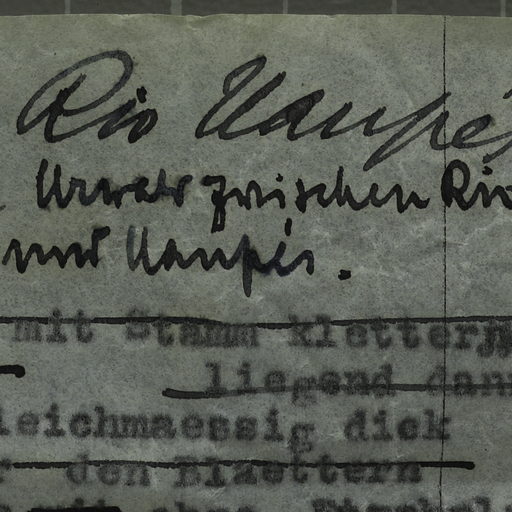 Rio Uaupés
Urwald zwischen Rio
und Uaupés.
mit Stamm kletterj
liegend dann
leichmaessig dick
den Blaettern